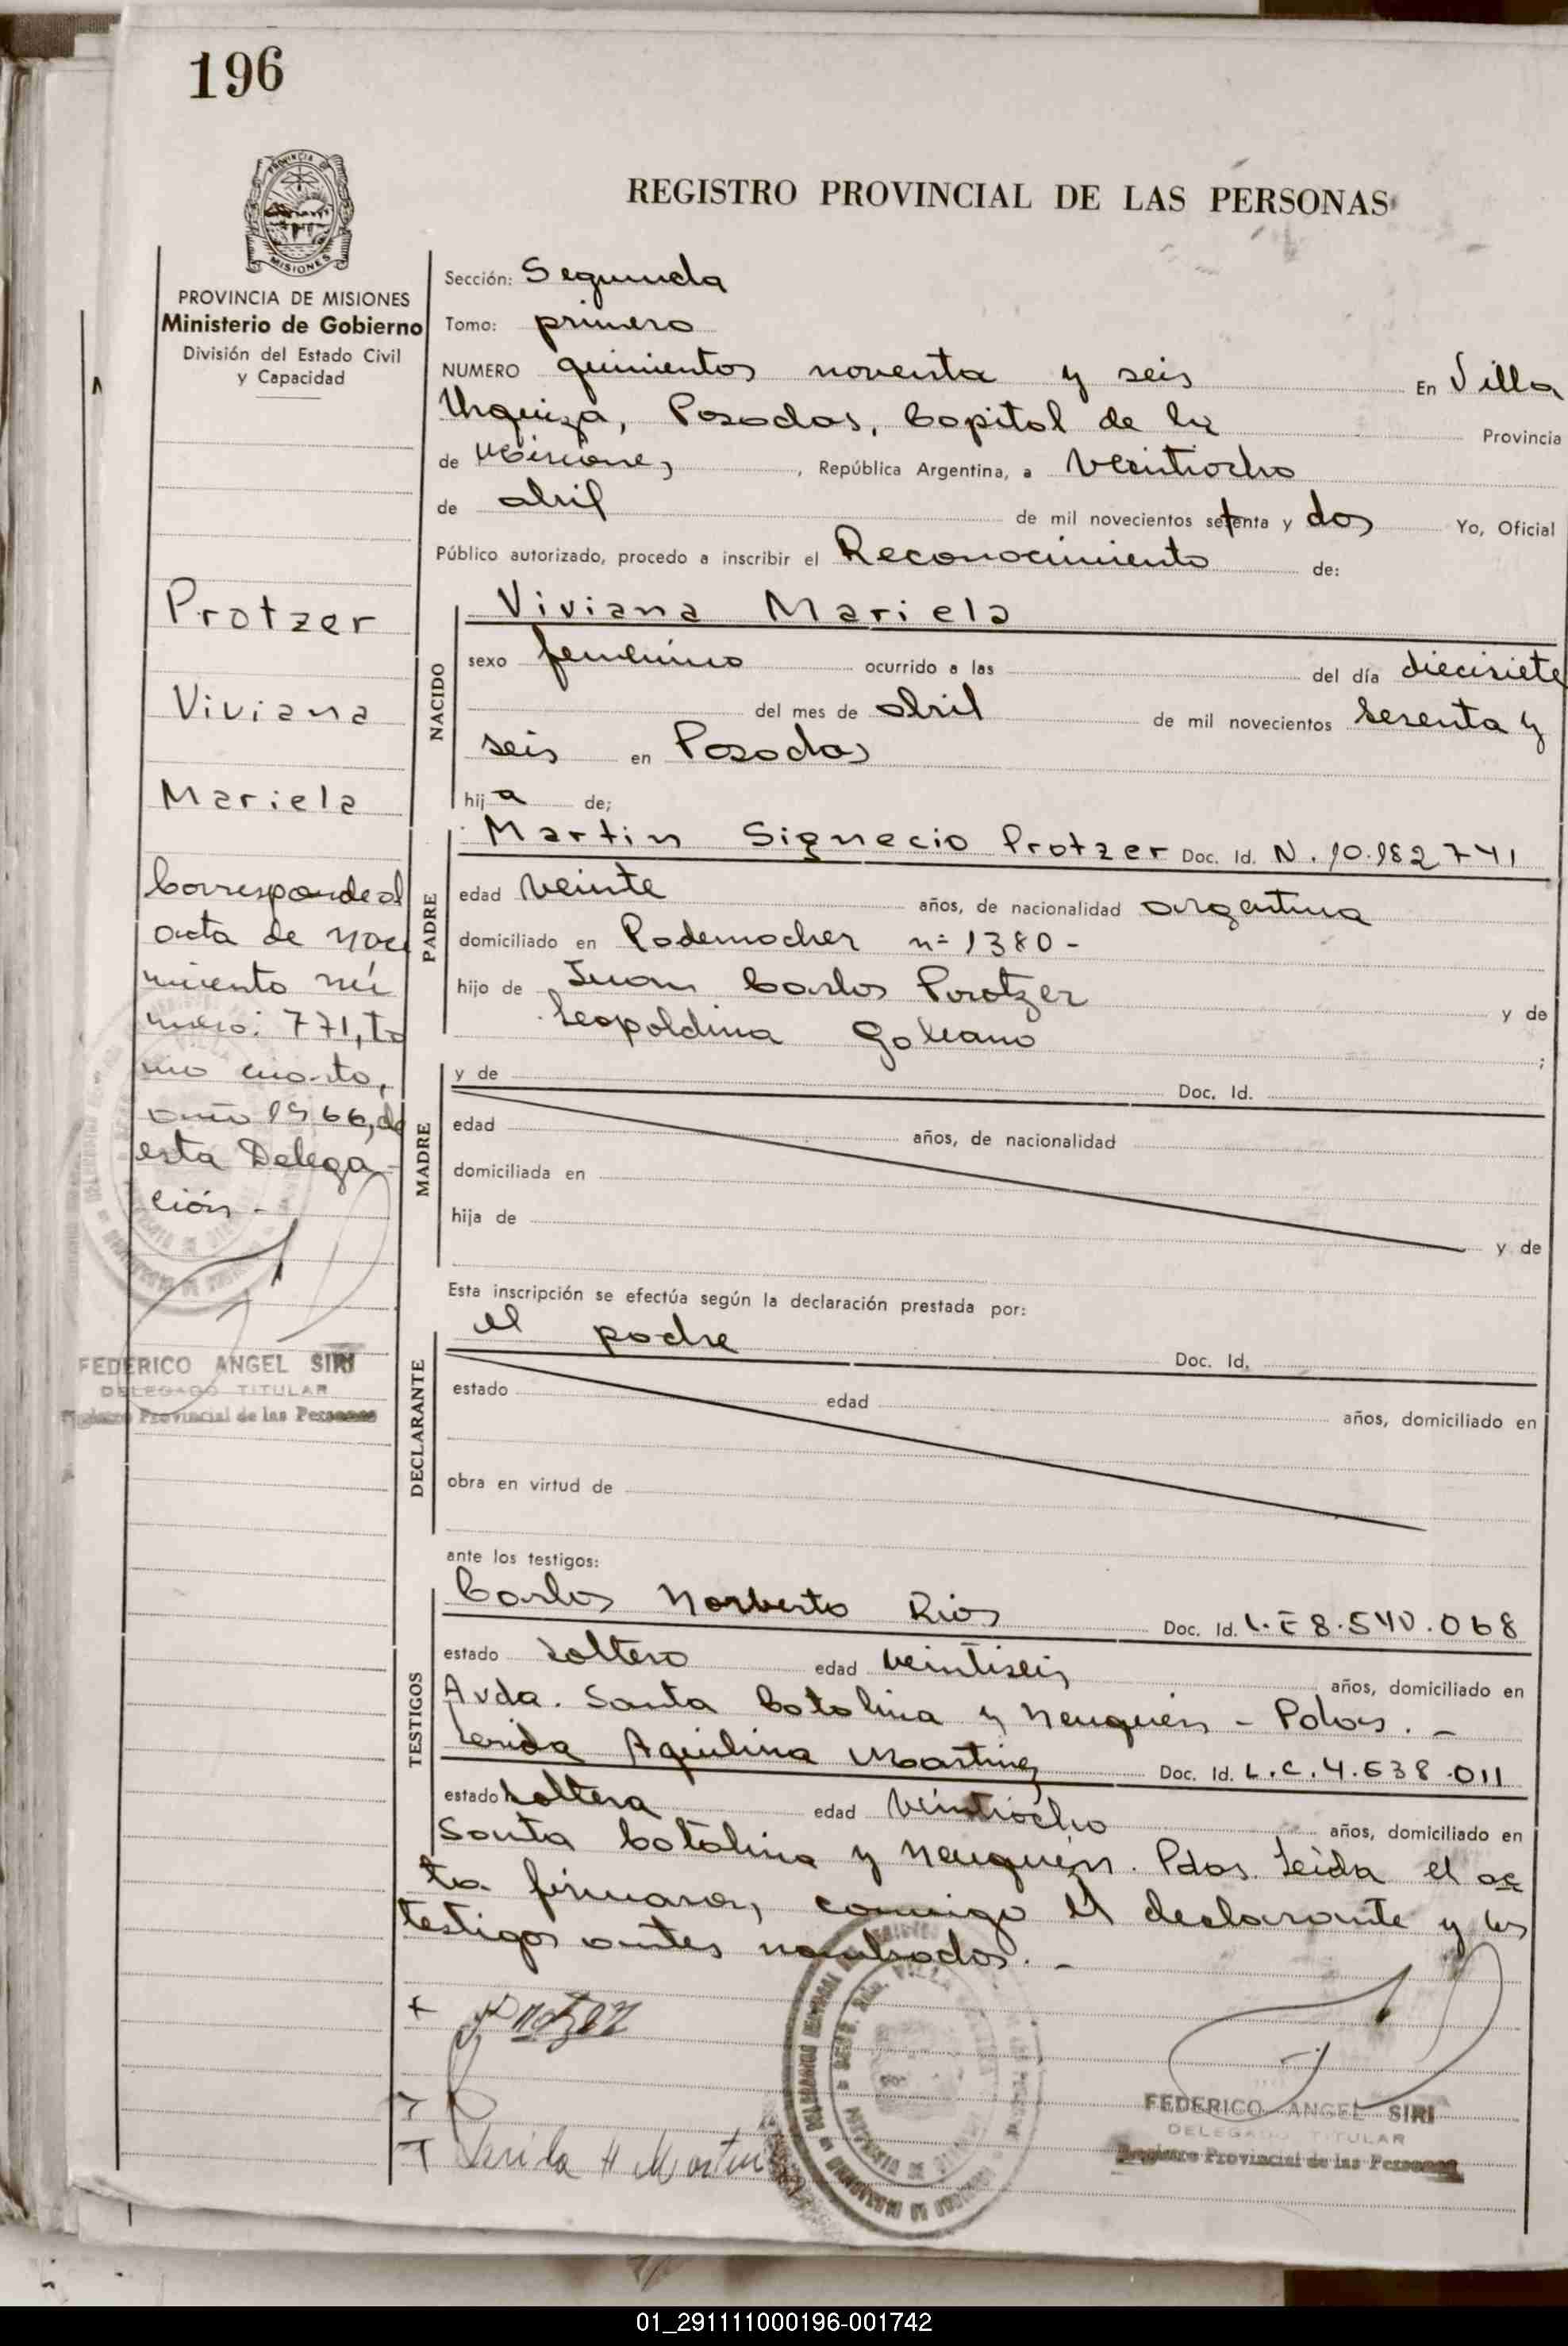 196
REGISTRO PROVINCIAL DE LAS PERSONAS
PROVINCIA DE
MISIONES
PROVINCIA DE MISIONES
Ministerio de Gobierno
División del Estado Civil
y Capacidad
Protzer
Viviana
Mariela
Corresponde al
acta de naci
miento nú
mero: 771, to
mo cuarto,
año 1966, de
esta Delega-
ción -
FEDERICO ANGEL SIRI
DELEGADO TITULAR
Registro Provincial de las Personas
Sección: Segunda
Tomo: primero
NUMERO quinientos noventa y seis En Villa
Urquiza, Posadas, Capital de la Provincia
de Misiones, República Argentina, a veintiocho
de abril de mil novecientos setenta y dos Yo, Oficial
Público autorizado, procedo a inscribir el Reconocimiento de:
NACIDO
Viviana Mariela
sexo femenino ocurrido a las del día diecisiete
del mes de abril de mil novecientos sesenta y
seis en Posadas
hija de;
PADRE
Martin Signecio Protzer Doc. Id. N. 10.182741
edad veinte años, de nacionalidad argentina
domiciliado en Rademacher nº 1380-
hijo de Juan Carlos Protzer y de
Leopoldina Galeano ;
MADRE
y de Doc. Id.
edad años, de nacionalidad
domiciliada en
hija de y de
Esta inscripción se efectúa según la declaración prestada por:
DECLARANTE
el padre Doc. Id.
estado edad años, domiciliado en
obra en virtud de
ante los testigos:
TESTIGOS
Carlos Norberto Rios Doc. Id. L.E 8.540.068
estado soltero edad veintiseis años, domiciliado en
Avda. Santa Catalina y Neuquén - Pdas. -
Lerida Aquilina Martinez Doc. Id. L.C.4.638.011
estado soltera edad veintiocho años, domiciliado en
Santa Catalina y Neuquén. Pdas. Leída el ac
ta firmaron, conmigo el declarante y los
testigos antes nombrados. -
Protzer
Lerida A Martin
FEDERICO ANGEL SIRI
DELEGADO TITULAR
Registro Provincial de las Personas
01_291111000196-001742